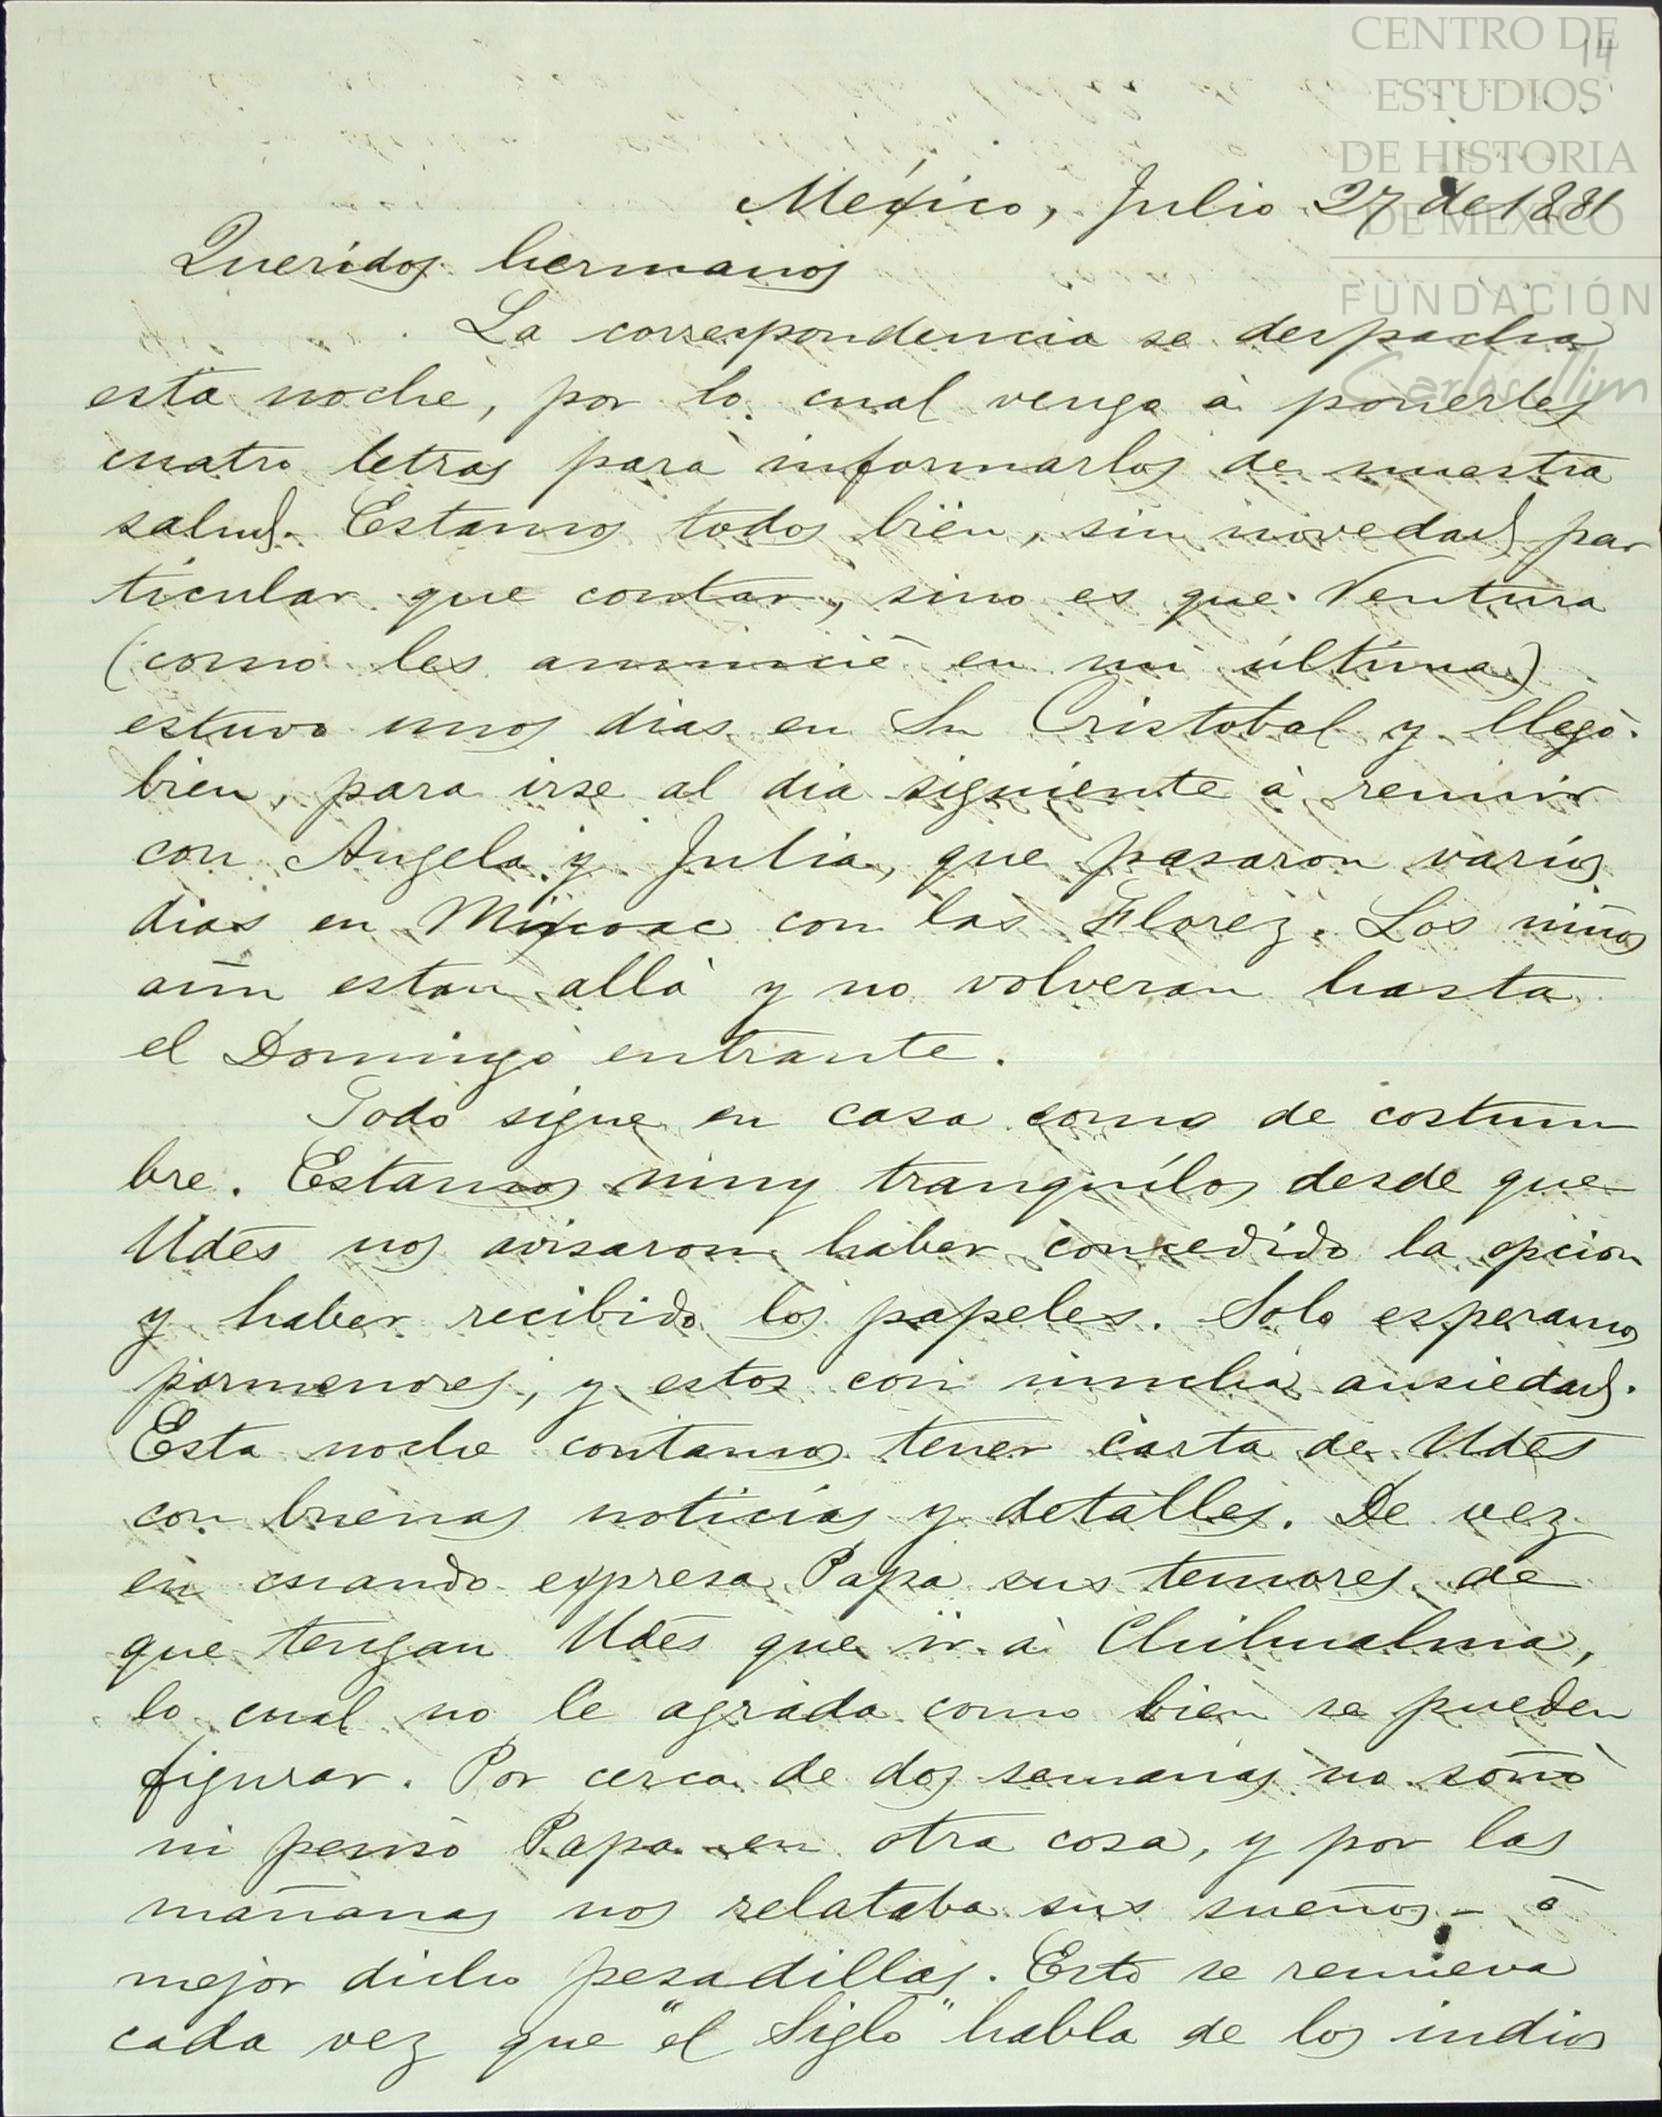 CENTRO DE
ESTUDIOS
DE HISTORIA
DE MEXICO
FUNDACIÓN
Carlos Slim
14
México, Julio 27 de 1881
Queridos hermanos
La correspondencia se despacha
esta noche, por lo cual vengo à ponerles
cuatro letras para informarlos de nuestra
salud. Estamos todos bien, sin novedad par
ticular que contar, sino es que Ventura
(como les anuncié en mi última)
estuvo unos dias en Sn Cristobal y llegó
bien, para irse al dia siguiente à reunir
con Angela y Julia, que pasaron varios
dias en Mixcoac con las Florez. Los niños
aun estan allà y no volveran hasta
el Domingo entrante.
Todo sigue en casa como de costum
bre. Estamos muy tranquilos desde que
Udes nos avisaron haber concedido la opcion
y haber recibido los papeles. Solo esperamos
pormenores, y estos con mucha ansiedad.
Esta noche contamos tener carta de Udes
con buenas noticias y detalles. De vez
en cuando expresa Papa sus temores de
que tengan Udes que ir à Chihualma,
lo cual no le agrada como bien se pueden
figurar. Por cerca de dos semanas no soñó
ni pensò Papa en otra cosa, y por las
mañanas nos relataba sus sueños - ò
mejor dicho pesadillas. Esto se renueva
cada vez que "el Siglo" habla de los indios